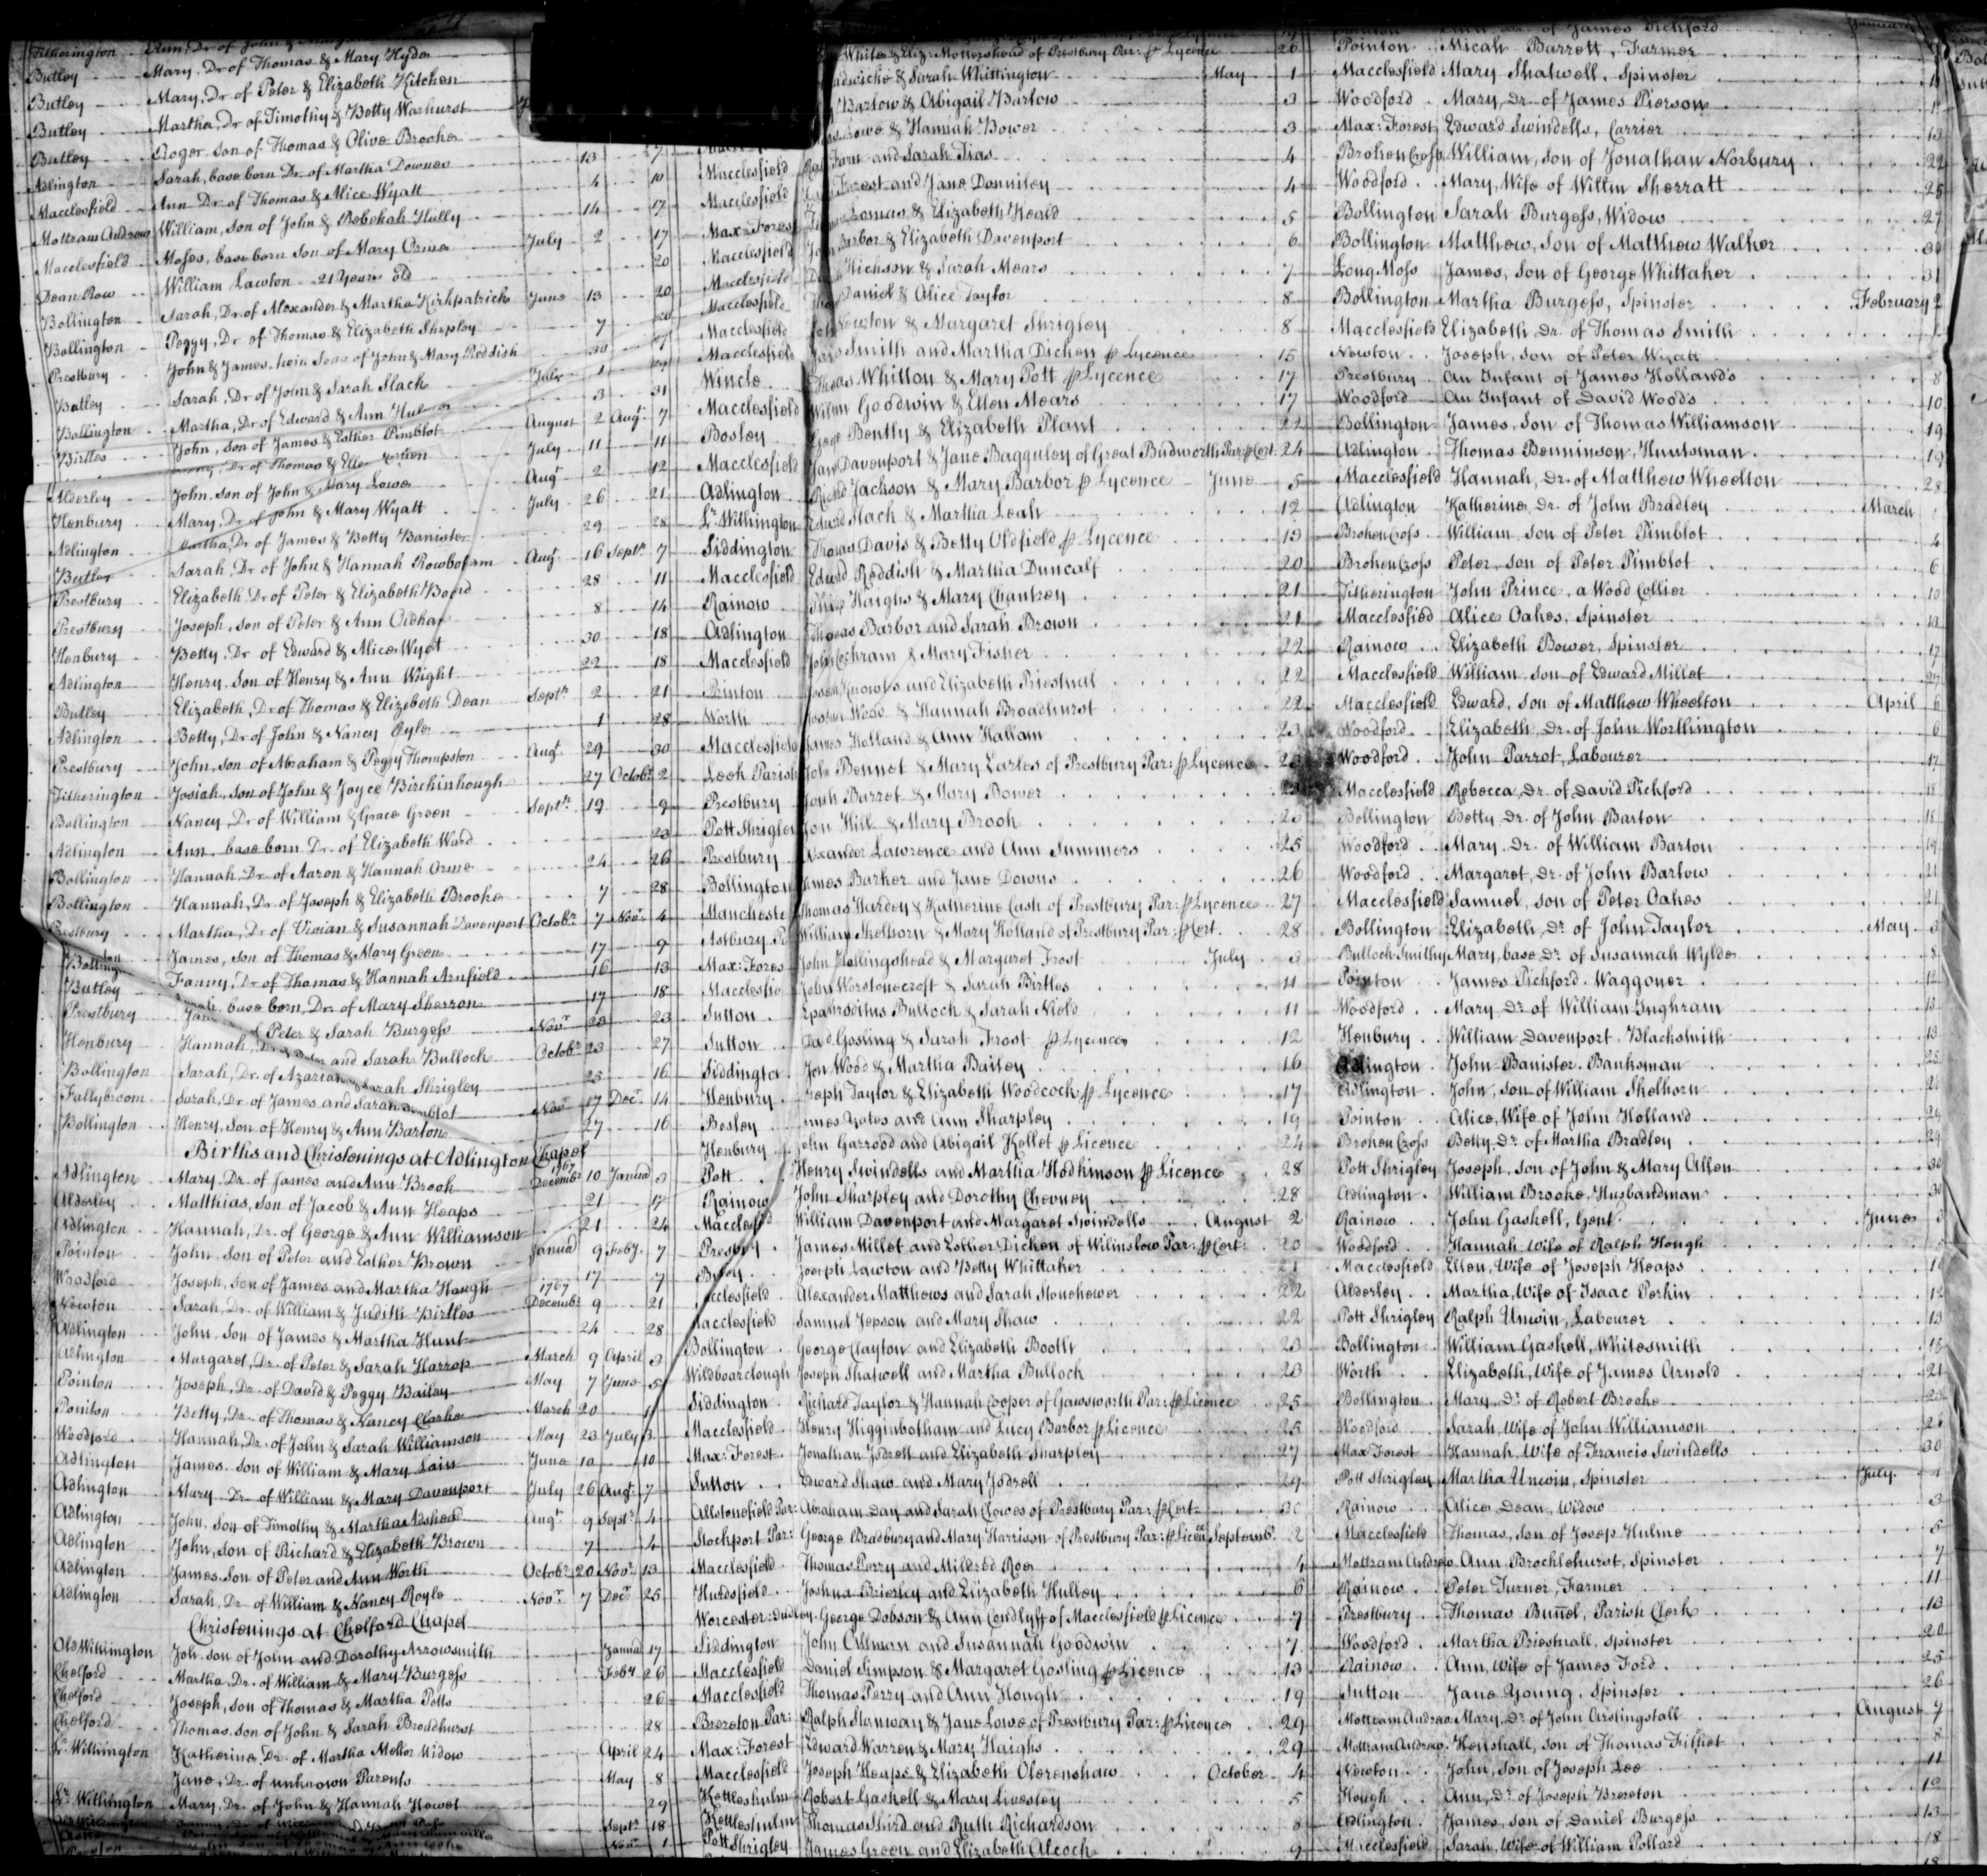 Butley Mary, Dr of Thomas & Mary Hyde
Butley Mary, Dr of Peter & Elizabeth Kitchen
Butley Martha, Dr of Timothy & Betty Warhurst
Butley Roger, son of Thomas & Olive Brooke 13
Adlington Sarah, base born Dr. of Martha Downes 4 10
Macclesfield Ann Dr of Thomas & Alice Wyatt 14 17
Mottram Andrew William, son of John & Rebekah Hully July 2 17
Macclesfield Moses, base born son of Mary Orme 20
Dean Row William Lawton 21 Years old 20
Bollington Sarah, Dr. of Alexander & Martha Kirkpatrick June 13
Bollington Peggy, Dr of Thomas & Elizabeth Shepley 7
Prestbury John & James, twin Sons of John & Mary Reddish 30
Butley Sarah, Dr of John & Sarah Slack July 1
Bollington Martha, Dr of Edward & Ann 3 31
Birtles John, son of James & Esther Pimblot August 2 Augt 7
Alderley John, son of John & Mary Lowe Augt 2 12
Henbury Mary, Dr of John & Mary Wyatt July 26 21
Adlington Martha, Dr of James & Betty Banister 29 28
Butley Sarah, Dr of John & Hannah Rowbotam Augt 16 Septr 7
Prestbury Elizabeth, Dr of Peter & Elizabeth 28 11
Prestbury Joseph, son of Peter & Ann 8 14
Henbury Betty, Dr of Edward & Alice Wyat 30 18
Adlington Henry, son of Henry & Ann Wright 22 18
Butley Elizabeth, Dr of Thomas & Elizabeth Dean Septr 2 21
Adlington Betty, Dr of John & Nancy 1 28
Prestbury John, son of Abraham & Peggy Thompston Augt 29 30
Titherington Josiah, son of John & Joyce Birchinhough 27 Octobr 2
Bollington Nancy, Dr of William & Grace Green Septr 19 9
Adlington Ann, base born Dr. of Elizabeth Ward 23
Bollington Hannah, Dr of Aaron & Hannah Orme 24 26
Bollington Hannah, Dr of Joseph & Elizabeth Brooke 7 28
Prestbury Martha, Dr of Vivian & Susannah Davenport Octobr 7 Novr 4
James, son of Thomas & Mary Green 17 9
Butley Fanny, Dr of Thomas & Hannah Arnfield 16 13
Prestbury base born, Dr. of Mary Sherron 17 18
Henbury Hannah, Peter & Sarah Burgess Novr 23 23
Bollington Sarah, Dr. of and Sarah Bulloch Octobr 23 27
Fallybroom Sarah, Dr of James and Sarah 25 16
Bollington Henry, Son of Henry & Ann Barton 27 16
Births and Christenings at Adlington Chapel
Adlington Mary, Dr. of James and Ann Brook Decembr 1767 10 Januā 3
Alderley Matthias, son of Jacob & Ann Heaps 21 17
Adlington Hannah, Dr. of George & Ann Williamson 21 24
Pointon John, son of Peter and Esther Brown Januā 9 Feby. 7
Woodford Joseph, son of James and Martha Hough 17 7
Newton Sarah, Dr. of William & Judith Birtles 1767 Decembr 9 21
Adlington John, son of James & Martha Hunt 24 28
Adlington Margaret, Dr. of Peter & Sarah Harrop March 9 April 3
Pointon Joseph, Dr. of David & Peggy Bailey May 7 June 5
Pointon Betty, Dr. of Thomas & Nancy Clarke March 20 1
Woodford Hannah, Dr. of John & Sarah Williamson May 23 July 3
Adlington James, son of William & Mary Lain June 10 10
Adlington Mary Dr. of William & Mary Davenport July 26 Augt. 7
Adlington John, son of Timothy & Martha Adshead Augt 9 Septr 4
Adlington John, son of Richard & Elizabeth Brown 7 4
Adlington James, son of Peter and Ann Worth Octobr 20 Novr 13
Adlington Sarah, Dr. of William & Nancy Royle Novr 7 Decr 25
Christenings at Chelford Chapel
Old Withington Joh. son of John and Dorothy Arrowsmith Januā 17
Chelford Martha, Dr. of William & Mary Burgess Feby 26
Chelford Joseph, son of Thomas & Martha Potts 26
Chelford Thomas, son of John & Sarah Broadhurst 28
Lr Withington Katherine, Dr. of Martha Mellor Widow April 24
Jane, Dr. of unknown Parents May 8
Lr Withington Mary, Dr. of John & Hannah Howel 29
Septr 18
Novr 1
White & Eliz: Mottershead of Prestbury Par: p Lycence 26
& Sarah Whittington May 1
Barlow & Abigail Barlow 3
Lowe & Hannah Bower 3
Macclesfield Farn and Sarah Tias 4
Macclesfield Forest and Jane Donniley 4
Max: Forest Lomas & Elizabeth Heald 5
Macclesfield Barbor & Elizabeth Davenport 6
Macclesfield Hickson & Sarah Mears 7
Macclesfield Daniel & Alice Taylor 8
Macclesfield Newton & Margaret Shrigley 8
Macclesfield Smith and Martha Dicken p Lycence 15
Wincle Whitton & Mary Pott p Lycence 17
Macclesfield Goodwin & Ellen Mears 17
Bosley Bently & Elizabeth Plant 22
Macclesfield Davenport & Jane Bagguley of Great Budworth Par: p Cert. 24
Adlington Jackson & Mary Barbor p Lycence June 5
Lr. Withington Mach & Martha Leah 12
Siddington Thomas Davis & Betty Oldfield p Lycence 13
Macclesfield Edward Reddish & Martha Duncalf 20
Rainow Haighs & Mary Chantrey 21
Adlington Thomas Barbor and Sarah Brown 21
Macclesfield John Cochram & Mary Fisher 22
Pointon Joseph Knowles and Elizabeth Priestnal 22
Worth Wood & Hannah Broadhurst 22
Macclesfield James Holland & Ann Hallam 23
Leek Parish John Bennet & Mary Earles of Prestbury Par: p Lycence 23
Prestbury Barret & Mary Bower
Pott Shrigley Jon Hill & Mary Brook 23
Prestbury Alexander Lawrence and Ann Summers 25
Bollington James Barker and Jane Downs 26
Manchester Thomas Hardey & Katherine Cash of Prestbury Par: p Lycence 27
Astbury William Skelhorn & Mary Holland of Prestbury Par: p Cert. 28
Max: Forest John Hollingshead & Margaret Frost July 3
Macclesfield John Worstonecroft & Sarah Birtles 11
Sutton Epaphroditus Bulloch & Sarah Nield 11
Sutton David Gosling & Sarah Frost p Lycence 12
Siddington Jon Wood & Martha Bailey 16
Henbury Joseph Taylor & Elizabeth Woodcock p Lycence 17
Bosley James Yates and Ann Sharpley 19
Henbury John Garrodd and Abigail Kellet p Licence 24
Pott Henry Swindells and Martha Hodkinson p Licence 28
Rainow John Sharpley and Dorothy Chevney 28
Macclesfield William Davenport and Margaret Swindells August 2
Prestbury James Millet and Esther Dicken of Wilmslow Par: p Cert: 20
Butley Joseph Lawton and Betty Whittaker 21
Macclesfield Alexander Matthews and Sarah Stonehewer 22
Macclesfield Samuel Jepson and Mary Shaw 22
Bollington George Clayton and Elizabeth Booth 23
Wildboarclough Joseph Shatwell and Martha Bulloch 23
Siddington Richard Taylor & Hannah Cooper of Gawsworth Par: p Licence 25
Macclesfield Henry Higginbotham and Lucy Barbor p Licence 25
Max: Forest Jonathan Jodrell and Elizabeth Sharpley 27
Sutton Edward Shaw and Mary Jodrell 29
Allstonefield Par: Abraham Day and Sarah Clowes of Prestbury Par: p Cert 30
Stockport Par: George Bradbury and Mary Harrison of Prestbury Par: p Licence Septembr. 2
Macclesfield Thomas Perry and Mildred Roe 4
Hurdsfield Joshua Brierley and Elizabeth Hulley 6
Worcester: Dudley George Dobson & Ann Condlyff of Macclesfield p Licence 7
Siddington John Allman and Susannah Goodwin 7
Macclesfield Daniel Simpson & Margaret Gosling p Licence 13
Macclesfield Thomas Perry and Ann Hough 19
Brereton Par: Ralph Stanway & Jane Lowe of Prestbury Par: p Licence 29
Max: Forest Edward Warren & Mary Haighs 29
Macclesfield Joseph Heaps & Elizabeth Olerenshaw October 4
Kettleshulm Robert Gaskell & Mary Livesley 5
Kettleshulm Thomas Shird and Ruth Richardson 8
Pott Shrigley James Green and Elizabeth Alcock 9
of James Pickford
Pointon Micah Barrett, Farmer
Macclesfield Mary Shatwell, Spinster 11
Woodford Mary, dr. of James Pierson
Max: Forest Edward Swindells, Carrier 13
Broken Cross William, son of Jonathan Norbury 22
Woodford Mary, Wife of Willm Sherratt 25
Bollington Sarah Burgess, Widow 27
Bollington Matthew, son of Matthew Walker 30
Long Moss James, son of George Whittaker 31
Bollington Martha Burgess, Spinster February 2
Macclesfield Elizabeth, dr. of Thomas Smith
Newton Joseph, son of Peter Wyatt
Prestbury An Infant of James Holland's 8
Woodford An Infant of David Wood's 10
Bollington James, son of Thomas Williamson 19
Adlington Thomas Benninson, Huntsman 19
Macclesfield Hannah, dr. of Matthew Wheelton 28
Adlington Katherine, dr. of John Bradley March
Broken Cross William, son of Peter Pimblot 4
Broken Cross Peter, son of Peter Pimblot 6
Titherington John Prince, a Wood Collier 10
Macclesfied Alice Oakes, Spinster
Rainow Elizabeth Bower, Spinster 17
Macclesfield William, son of Edward Millet 27
Macclesfield Edward, son of Matthew Wheelton April 6
Woodford Elizabeth, dr. of John Worthington 6
Woodford John Parrot, Labourer 17
Macclesfield Rebecca, dr. of David Pickford 18
Bollington Betty dr. of John Barton 18
Woodford Mary, dr. of William Barton 19
Woodford Margaret, dr. of John Barlow 21
Macclesfield Samuel, son of Peter Oakes
Bollington Elizabeth, dr of John Taylor May 3
Bullock Smithy Mary, base dr. of Susannah Wylde 8
Pointon James Pickford, Waggoner 12
Woodford Mary dr of William Inghram 13
Henbury William Davenport, Blacksmith 13
Adlington John Banister, Banksman 25
Adlington John, son of William Skelhorn 26
Pointon Alice, Wife of John Holland
Broken Cross Betty, dr of Martha Bradley 29
Pott Shrigley Joseph, son of John & Mary Allen 30
Adlington William Brooke, Husbandman 30
Rainow John Gaskell, Gent. June 3
Woodford Hannah, Wife of Ralph Hough
Macclesfield Ellen, Wife of Joseph Heaps
Alderley Martha, Wife of Isaac Perkin 12
Pott Shrigley Ralph Unwin, Labourer 13
Bollington William Gaskell, Whitesmith 15
Worth Elizabeth, Wife of James Arnold 21
Bollington Mary, dr of Robert Brooke
Woodford Sarah, Wife of John Williamson 26
Max Forest Hannah, Wife of Francis Swindells 30
Pott Shrigley Martha Unwin, Spinster July 1
Rainow Alice Dean, Widow 3
Macclesfield Thomas, son of Josep Hulme 5
Mottram Andrew Ann Brocklehurst, Spinster 7
Rainow Peter Turner, Farmer 11
Prestbury Thomas Bunnel, Parish Clerk 13
Woodford Martha Priestnall, Spinster 20
Rainow Ann, Wife of James Ford 25
Sutton Jane Young, Spinster 26
Mottram Andrew Mary, dr of John Ardingstall August 7
Mottram Andrew Henshall, son of Thomas 8
Newton John, son of Joseph Lee 11
Hough Ann, dr of Joseph Brereton
Adlington James, son of Daniel Burgess 13
Macclesfield Sarah, Wife of William Pollard 18